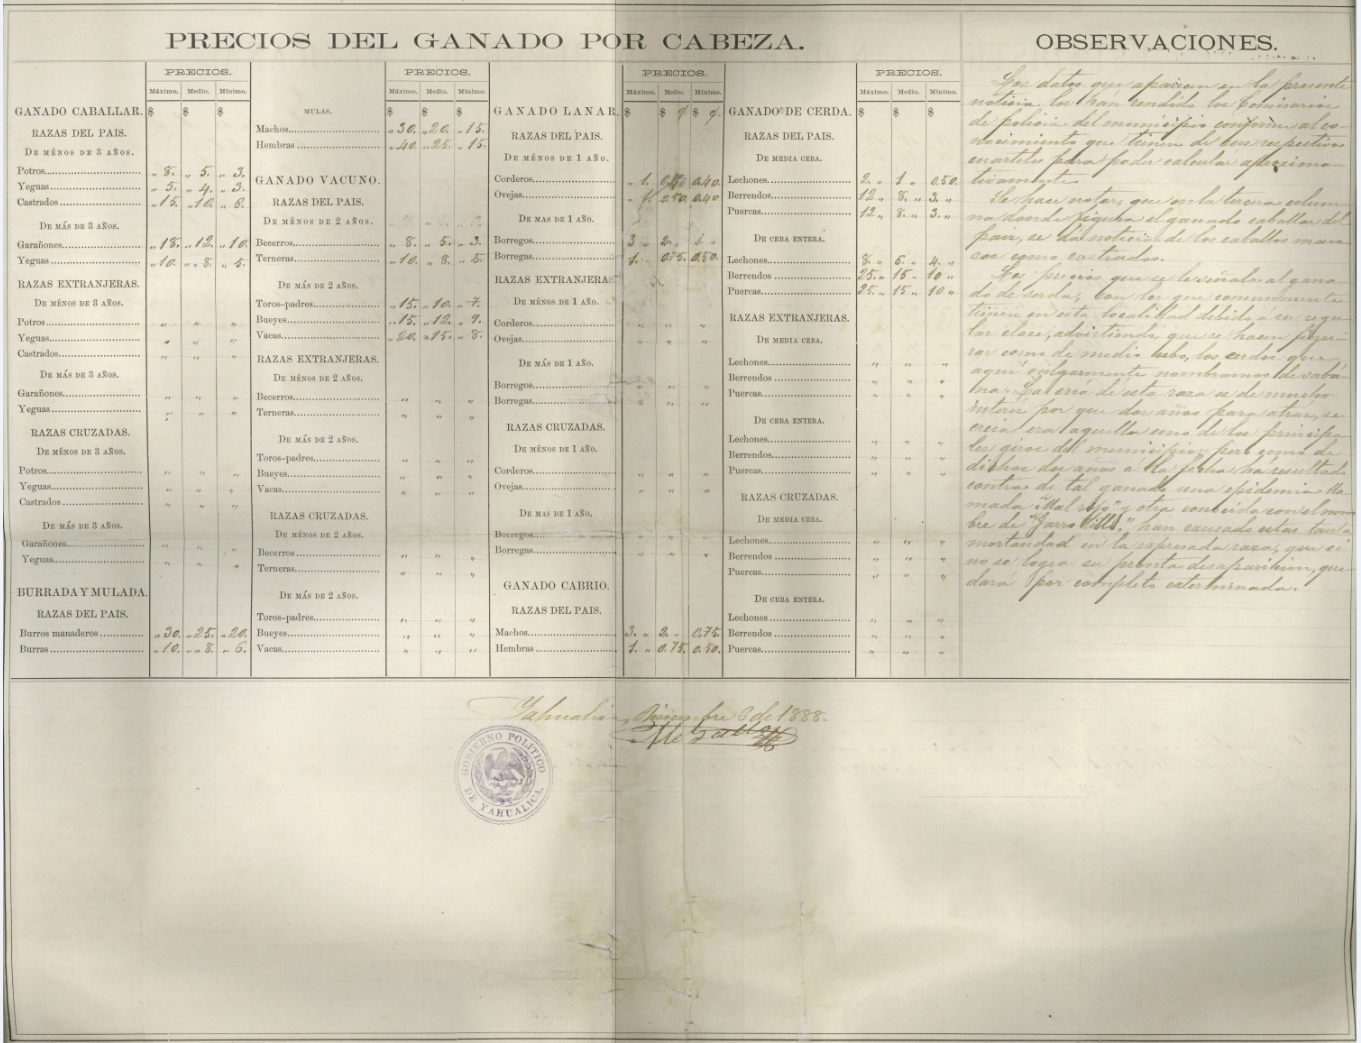 PRECIOS DEL GANADO POR CABEZA.
OBSERVACIONES.
PRECIOS.
Máximo. Medio. Mínimo.
GANADO CABALLAR. $ $ $
RAZAS DEL PAIS.
DE MÉNOS DE 3 AÑOS.
Potros „ 8. „ 5. „ 3.
Yeguas „ 5. „ 4. „ 3.
Castrados „ 15. „ 10. „ 6.
DE MÁS DE 3 AÑOS.
Garañones „ 18. „ 12. „ 10.
Yeguas „ 10. „ 8. „ 5.
RAZAS EXTRANJERAS.
DE MÉNOS DE 3 AÑOS.
Potros „ „ „
Yeguas „ „ „
Castrados „ „ „
DE MÁS DE 3 AÑOS.
Garañones „ „ „
Yeguas „ „ „
RAZAS CRUZADAS.
DE MÉNOS DE 3 AÑOS.
Potros „ „ „
Yeguas „ „ „
Castrados „ „ „
DE MÁS DE 3 AÑOS.
Garañones „ „ „
Yeguas „ „ „
BURRADA Y MULADA.
RAZAS DEL PAIS.
Burros manaderos „ 30. „ 25. „ 20.
Burras „ 10. „ 8. „ 6.
PRECIOS.
Máximo. Medio. Mínimo.
$ $ $
MULAS.
Machos „ 30. „ 20. „ 15.
Hembras „ 40. „ 25. „ 15.
GANADO VACUNO.
RAZAS DEL PAIS.
DE MÉNOS DE 2 AÑOS.
Becerros „ 8. „ 5. „ 3.
Terneras „ 10. „ 8. „ 5.
DE MÁS DE 2 AÑOS.
Toros-padres „ 15. „ 10. „ 7.
Bueyes „ 15. „ 12. „ 9.
Vacas „ 20. „ 15. „ 8.
RAZAS EXTRANJERAS.
DE MÉNOS DE 2 AÑOS.
Becerros „ „ „
Terneras „ „ „
DE MÁS DE 2 AÑOS.
Toros-padres „ „ „
Bueyes „ „ „
Vacas „ „ „
RAZAS CRUZADAS.
DE MÉNOS DE 2 AÑOS.
Becerros „ „ „
Terneras „ „ „
DE MÁS DE 2 AÑOS.
Toros-padres „ „ „
Bueyes „ „ „
Vacas „ „ „
PRECIOS.
Máximo. Medio. Mínimo.
GANADO LANAR. $ $ $
RAZAS DEL PAIS.
DE MÉNOS DE 1 AÑO.
Corderos „ 1. 0.40
Ovejas „ 1. 0.50 0.40
DE MAS DE 1 AÑO.
Borregos 3 „ 2. „ 1. „
Borregas 1. „ 0.75. 0.50.
RAZAS EXTRANJERAS
DE MÉNOS DE 1 AÑO.
Corderos „ „ „
Ovejas „ „ „
DE MÁS DE 1 AÑO.
Borregos „ „ „
Borregas „ „ „
RAZAS CRUZADAS.
DE MÉNOS DE 1 AÑO.
Corderos „ „ „
Ovejas „ „ „
DE MAS DE 1 AÑO.
Borregos „ „ „
Borregas „ „ „
GANADO CABRIO.
RAZAS DEL PAIS.
Machos 3. „ 2. „ 0.75.
Hembras 1. „ 0.75. 0.50.
PRECIOS.
Máximo. Medio. Mínimo.
GANADO DE CERDA. $ $ $
RAZAS DEL PAIS.
DE MEDIA CEBA.
Lechones 2. „ 1 „ 0.50.
Berrendos 12 „ 8. „ 3. „
Puercas 12 „ 8. „ 3. „
DE CEBA ENTERA.
Lechones 8. „ 6. „ 4. „
Berrendos 25. „ 15 „ 10 „
Puercas 25. „ 15 „ 10 „
RAZAS EXTRANJERAS.
DE MEDIA CEBA.
Lechones „ „ „
Berrendos „ „ „
Puercas „ „ „
DE CEBA ENTERA.
Lechones „ „ „
Berrendos „ „ „
Puercas „ „ „
RAZAS CRUZADAS.
DE MEDIA CEBA.
Lechones „ „ „
Berrendos „ „ „
Puercas „ „ „
DE CEBA ENTERA.
Lechones „ „ „
Berrendos „ „ „
Puercas „ „ „
Los datos que aparecen en la presente
noticia los han rendido los comisarios
de policia del municipio conforme al co-
nocimiento que tienen de sus respectivos
cuarteles para poder calcular aproxima-
tivamente.
Se hace notar, que en la tercera colum-
na donde figura el ganado caballar del
pais, se da noticia de los caballos man-
sos como castrados.
Los precios que se le señalan al gana-
do de cerda, son los que comunmente
tienen en esta localidad debido a su regu-
lar clase, advirtiendo, que se hacen figu-
rar como de media ceba, los cerdos que
aqui vulgarmente nombramos de sabá-
na. La cria de esta raza es de mucho
interes por que dos años para atras, se
creia era aquella uno de los principa-
les giros del municipio; pero como de
dichos dos años a la fecha ha resultado
contra de tal ganado una epidemia lla-
mada "Mal rojo" y otra conocida con el nom-
bre de "Garro " han causado estas tanta
mortandad en la espresada raza, que si
no se logra su pronta desaparicion, que-
dará por completo esterminada.
Yahualica, Diciembre 6 de 1888.
GOBIERNO POLITICO
DE YAHUALICA.